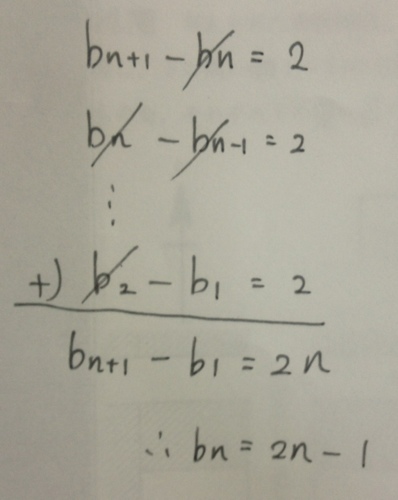 bn+1 - bn = 2
bn - bn-1 = 2
⋮
+) b2 - b1 = 2
bn+1 - b1 = 2n
∴ bn = 2n - 1